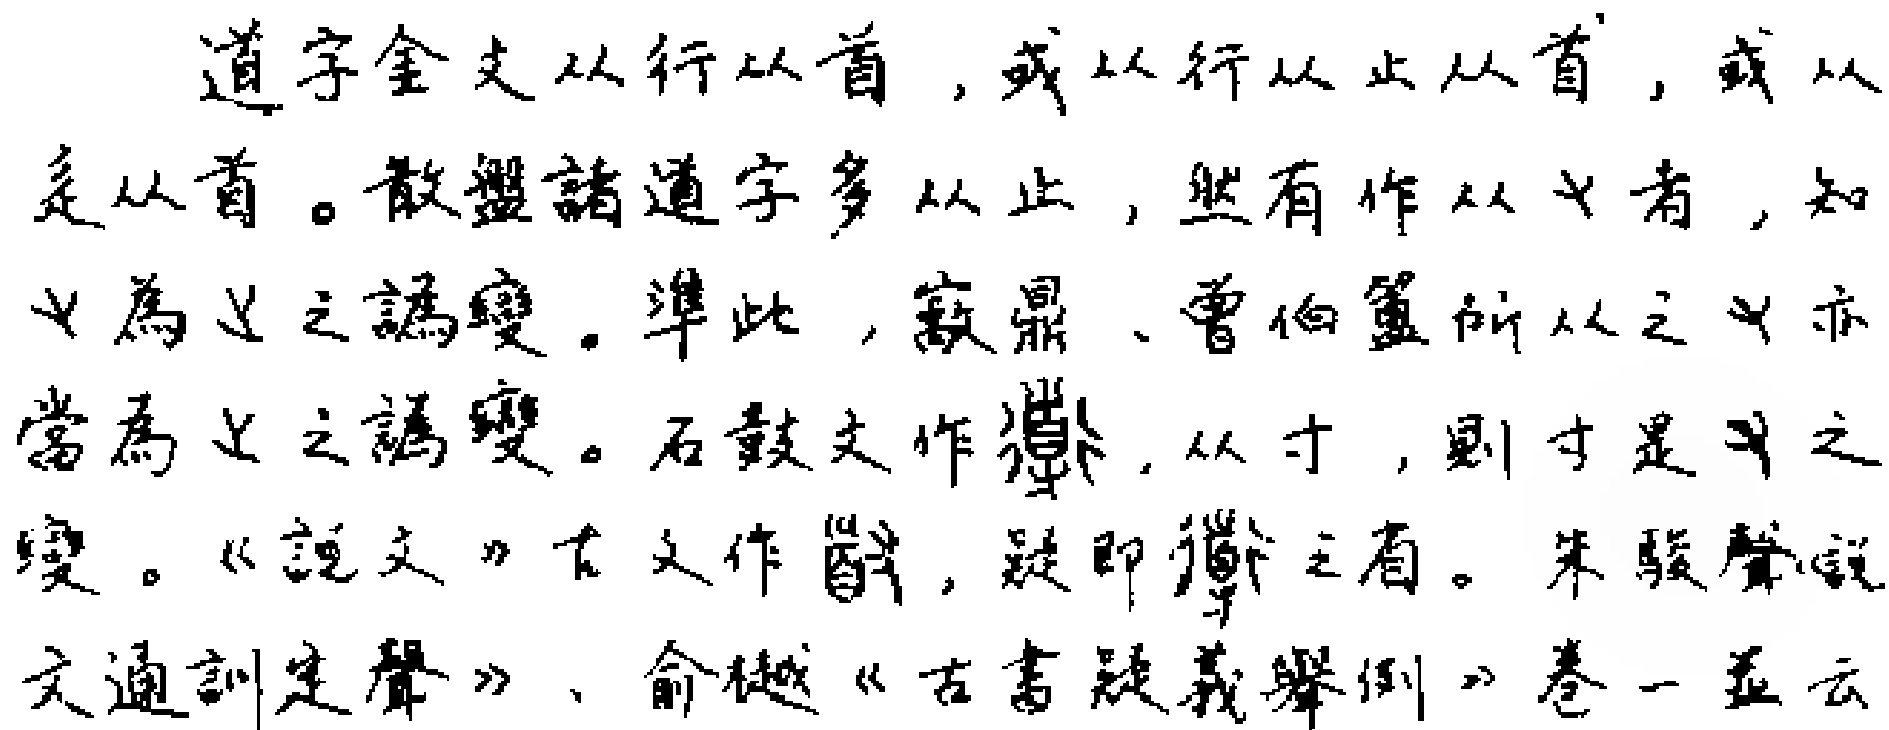 道字金文从行从首,或从行从止从首,或从
辵从首。散盤諸道字多从止,然有作从又者,知
又為止之譌變。準此,䵼鼎、曾伯簠所从之又亦
當為止之譌變。石鼓文作,从寸,則寸是又之
變。《說文》古文作,疑即之省。朱駿聲《說
文通訓定聲》、俞樾《古書疑義舉例》卷一並云